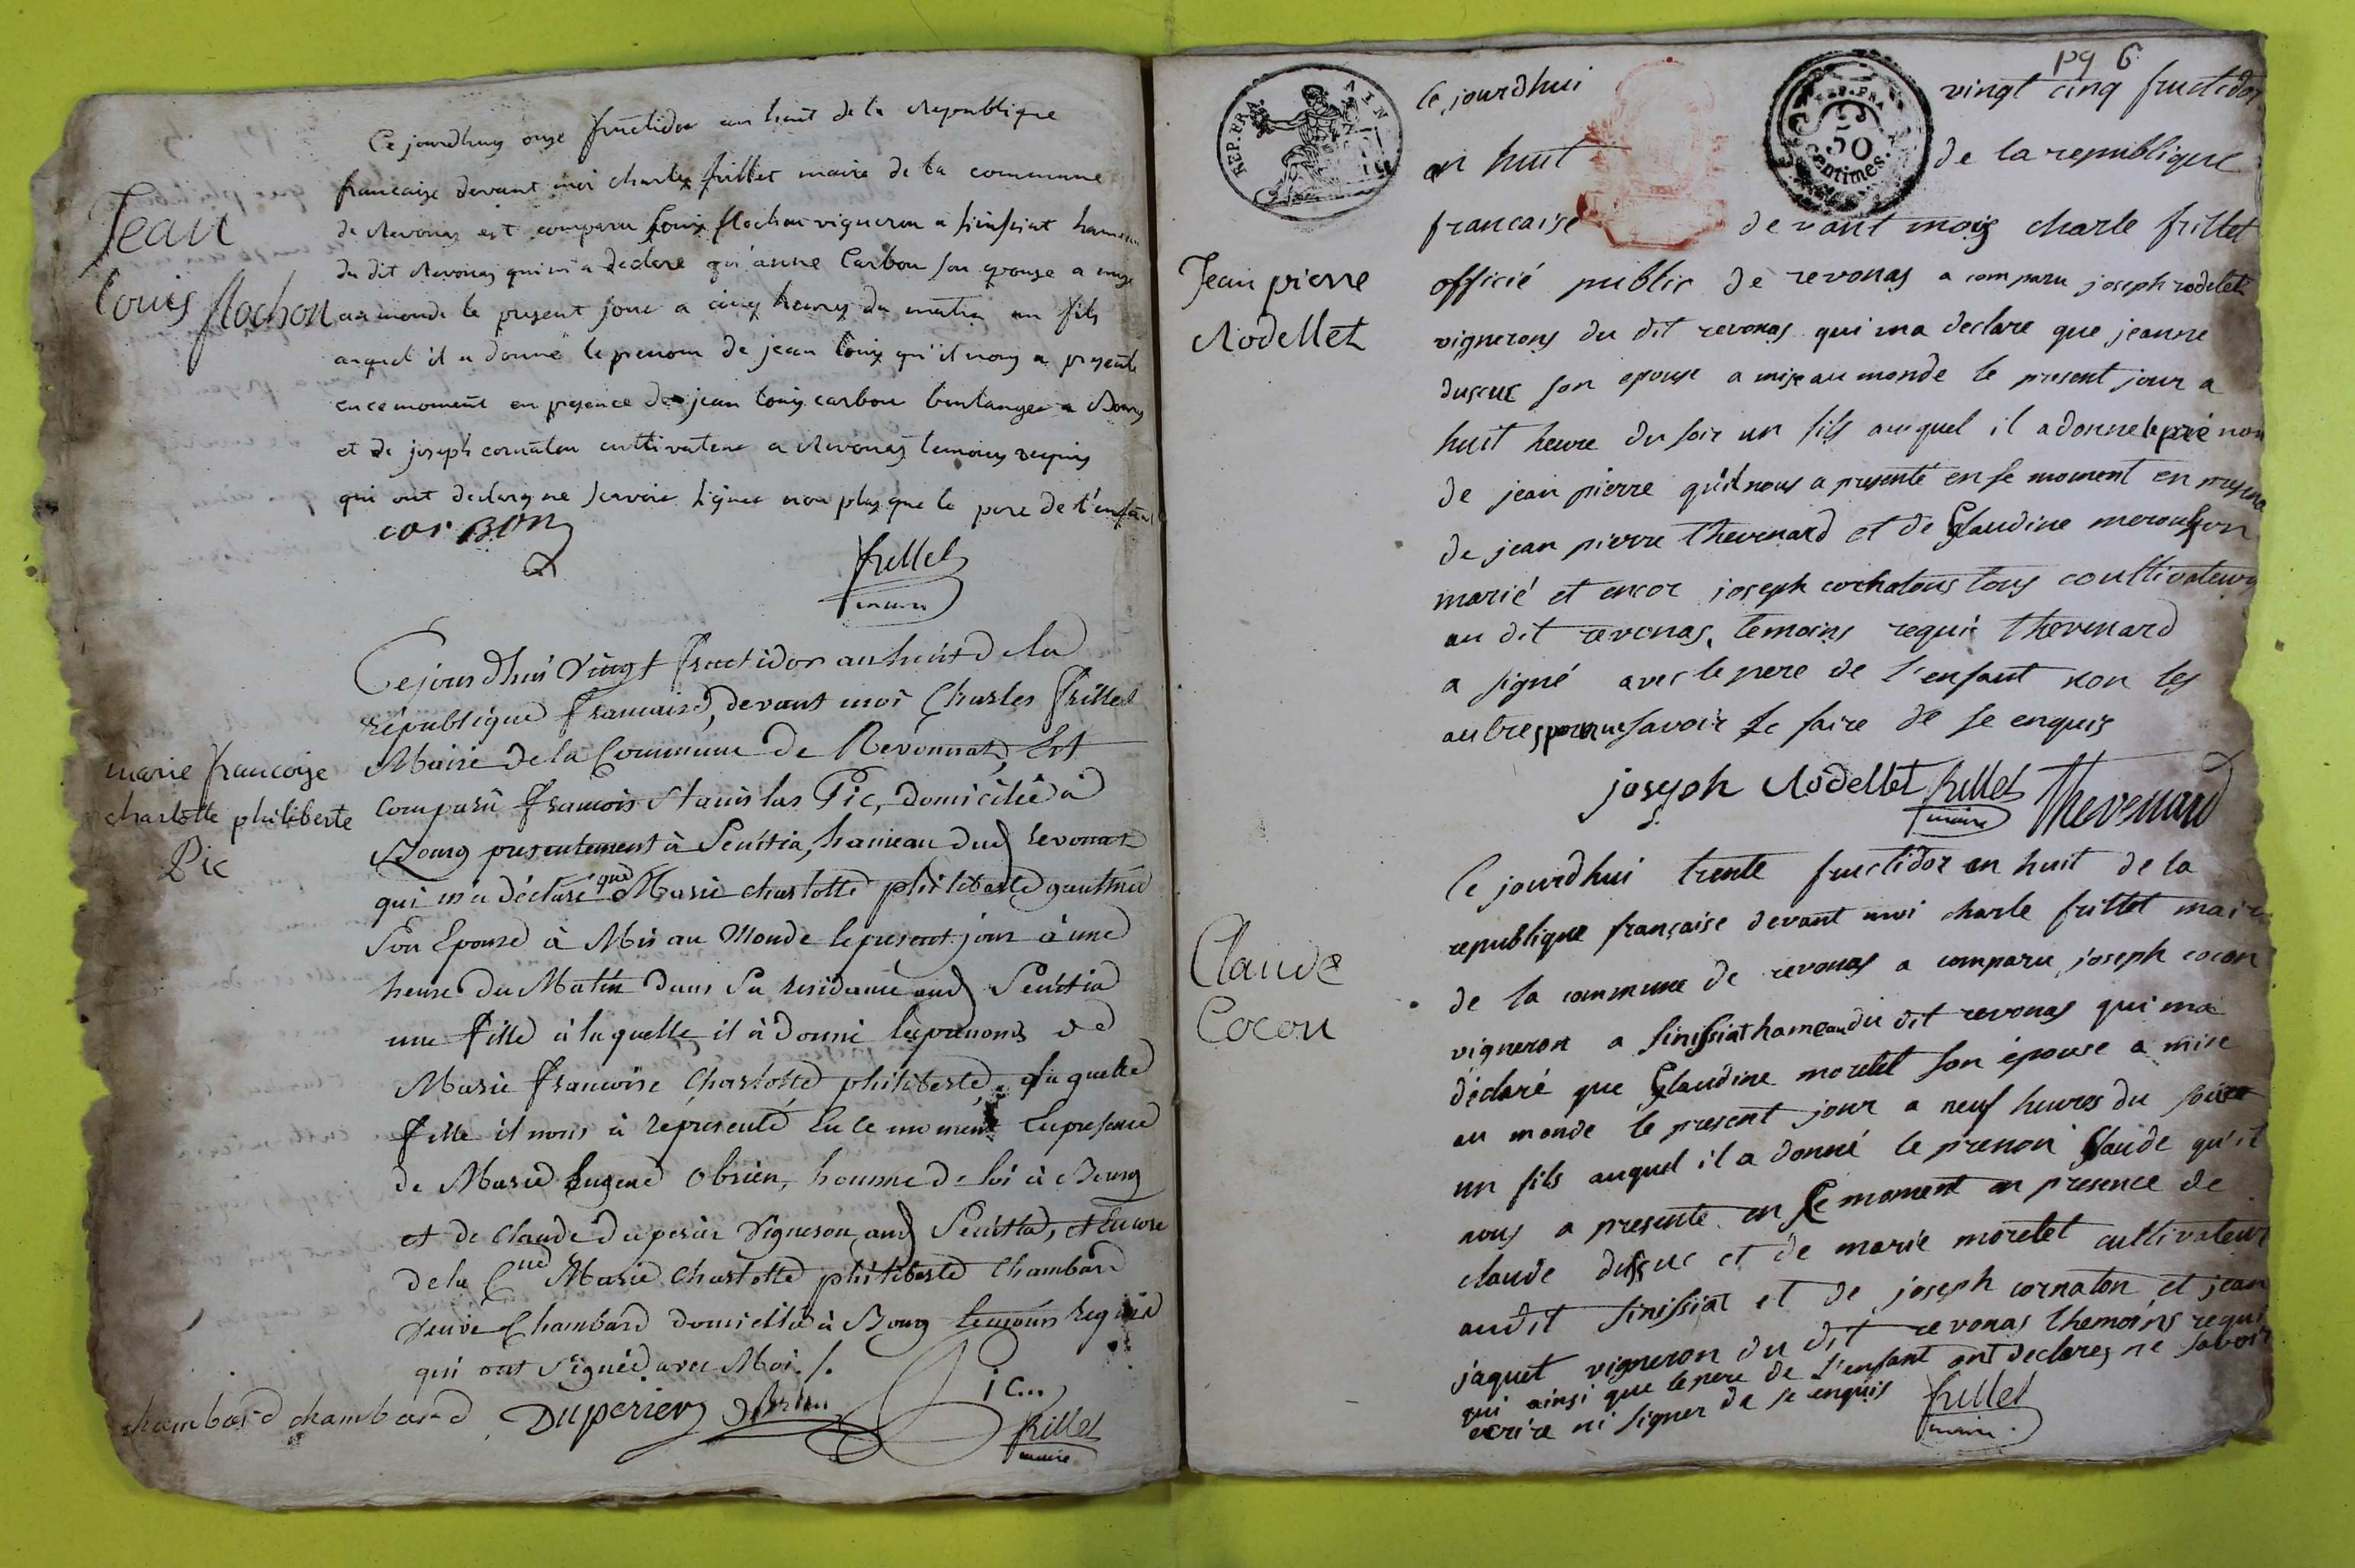 Jean
Louis flochon
Ce jourdhuy onze fructidor an huit de la republique
francaize devant moi charle frillet maire de la commune
de Revonas est comparu Louis flochon vigneron a sinissiat hameau
du dit Revonas qui m'a declare qu'anne Carbon son epouze a mize
au monde le present jour a cinq heures du matin un fils
auquel il a donné le prenom de jean louis qu'il nous a presenté
en ce moment en presence de jean louis carbon boulanger a Bourg
et de joseph cornaton cultivateur a Revonas temoins requis
qui ont declarés ne scavoir signer non plus que le pere de l'enfant
carBon
frillet
maire
marie francoise
charlotte philiberte
Pic
Cejourdhui vingt fructidor an huit de la
république francaise, devant moi Charles frillet
Maire de la Commune de Revonnat, Est
comparû francois Stanislas Pic, domicilié à
Bourg presentement à Senitia, hameau dud revonat
qui m'a déclaré que Marie charlotte philiberte gauthier
Son Epouse à Mis au Monde le present jour à une
heure du Matin dans Sa residance aud Senitia
une fille à laquelle il à donné les prenoms de
Marie francoise Charlotte philiberte, laquelle
fille il nous à représenté En ce moment En presence
de Marie Eugene Obrien, homme de loi à Bourg
et de Claude duperier vigneron aud Senitia, et Encore
de la Cne Marie Charlotte philiberte Chambard
veuve Chambard domicilié à Bourg temoins requis
qui ont signé avec Moi ./.
chambard chambard Duperier obrien Pic...
frillet
maire
pg 6
REP. FRA. AIN
REP. FRA.
50
Centimes.
Jean pierre
Rodellet
Ce jourdhui vingt cinq fructidor
an huit de la republique
francaise devant mois charle frillet
officié public de revonas a comparu joseph rodelet
vignerons du dit revonas qui ma declare que jeanne
dussuc son epouse a mise au monde le present jour a
huit heure du soir un fils auquel il a donne le pré nom
de jean pierre qu'il nous a presenté en se moment en presence
de jean pierre thevenard et de Claudine
marié et encor joseph cochatons tous coultivateurs
au dit revonas, temoins requis thevenard
a signé avec le pere de l'enfant non les
autres pour ne savoir le faire de se enquis
joseph Rodellet frillet Thevenard
maire
Claude
Cocon
Ce jourdhui trente fructidor an huit de la
republique française devant moi charle frillet maire
de la commune de revonas a comparu joseph cocon
vigneron a sinissiat hameau du dit revonas qui ma
déclaré que Claudine morelet son épouse a mise
au monde le present jour a neuf heures du soir
un fils auquel il a donné le prenom Claude qu'il
nous a presenté en ce moment en presence de
claude dussuc et de marie morelet cultivateur
audit sinissiat et de joseph cornaton et jean
jaquet vigneron du dit revonas themoins requi
qui ainsi que le pere de l'enfant ont declares ne savoir
ecrire ni signer de se enquis
frillet
maire